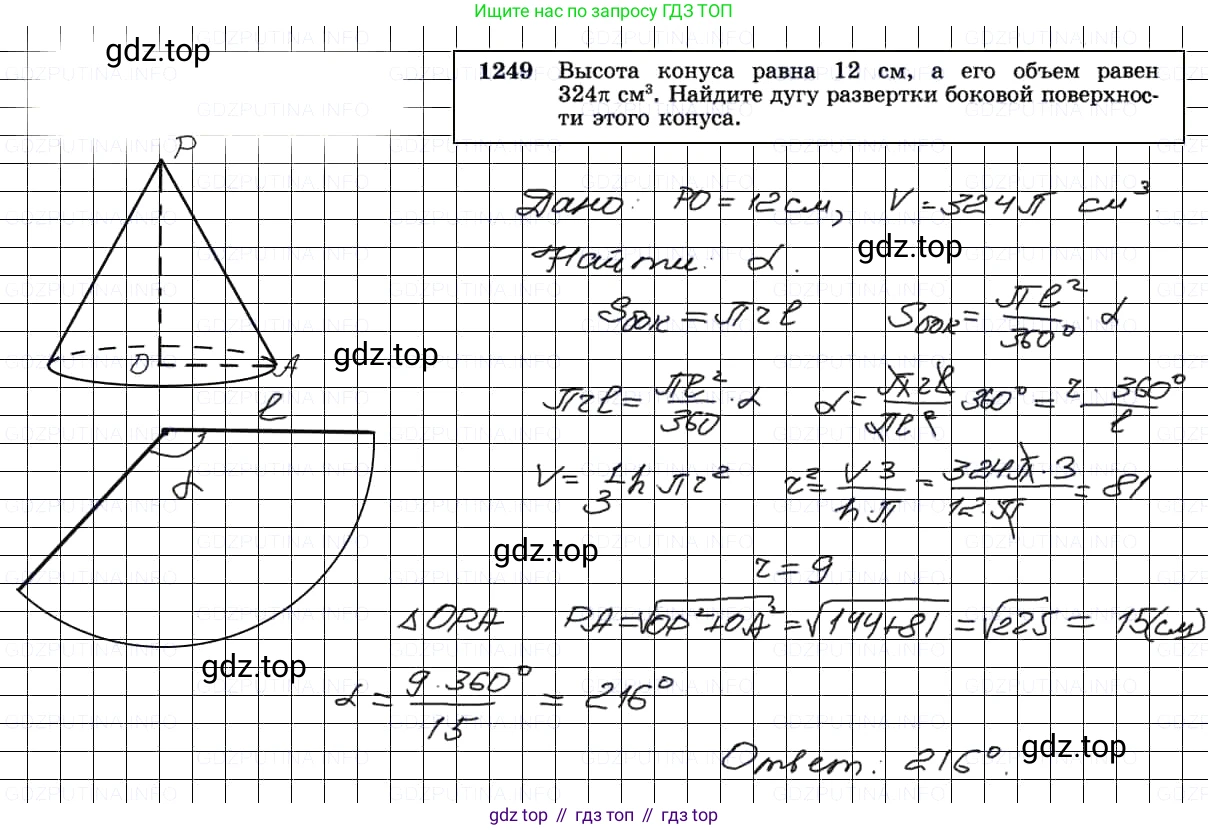 Ищите нас по запросу ГДЗ ТОП
gdz.top
1249 Высота конуса равна 12 см, а его объем равен
324π см³. Найдите дугу развертки боковой поверхнос-
ти этого конуса.
P
O
A
Дано: PO = 12 см, V = 324π см³.
gdz.top
Найти: α.
Sбок = πrl Sбок = πl²/360° · α
gdz.top
l
πrl = πl²/360 · α α = πrl/πl² 360° = r · 360°/l
α
V = 1/3 h πr² r² = V 3/h·π = 324π · 3/12·π = 81
gdz.top
r = 9
△OPA PA = √OP²+OA² = √144+81 = √225 = 15(см)
gdz.top
α = 9·360°/15 = 216°
Ответ: 216°.
gdz.top
gdz top // гдз топ // гдз top
GDZPUTINA.INFO